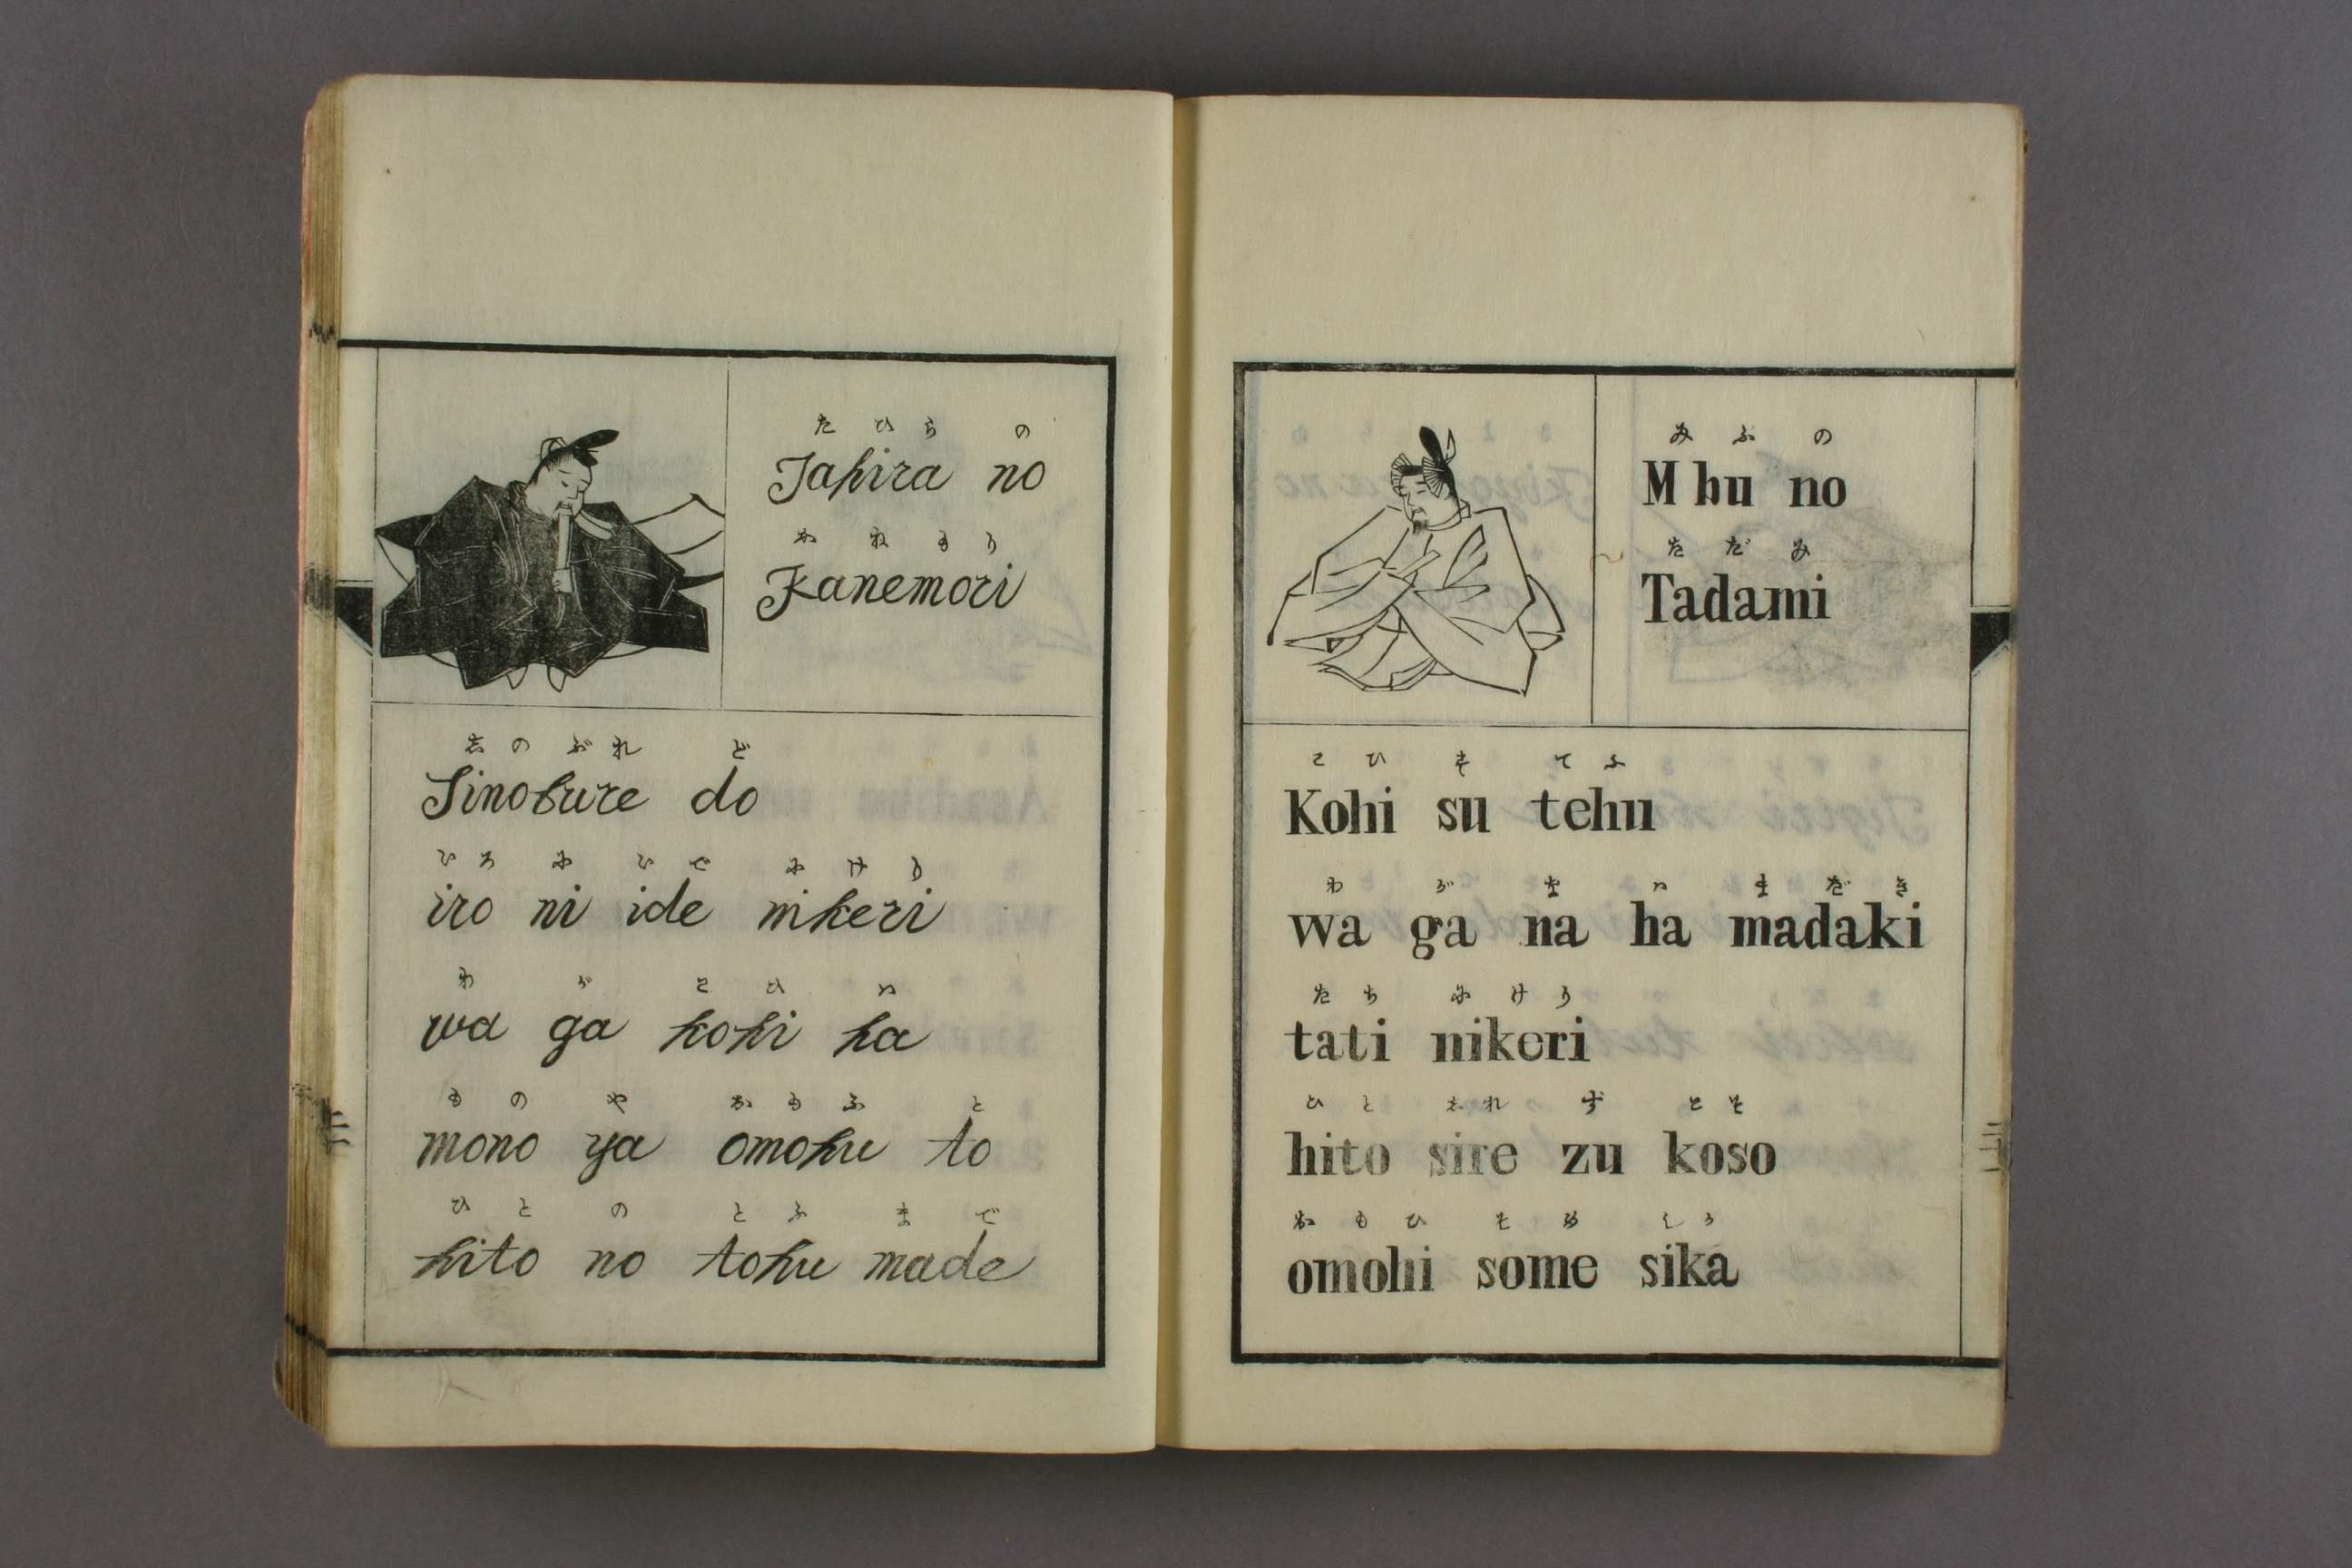 たひらの
Tahira no
かねもり
Kanemori
志のぶれど
Sinobure do
いろにいでにけり
iro ni ide nikeri
わがこひハ
wa ga kohi ha
ものやおもふと
mono ya omohu to
ひとのとふまで
hito no tohu made
みふの
Mbu no
ただみ
Tadami
こひすてふ
Kohi su tehu
わがなハまだき
wa ga na ha madaki
たちにけり
tati nikeri
ひと志れずこそ
hito sire zu koso
おもひそめしか
omohi some sika